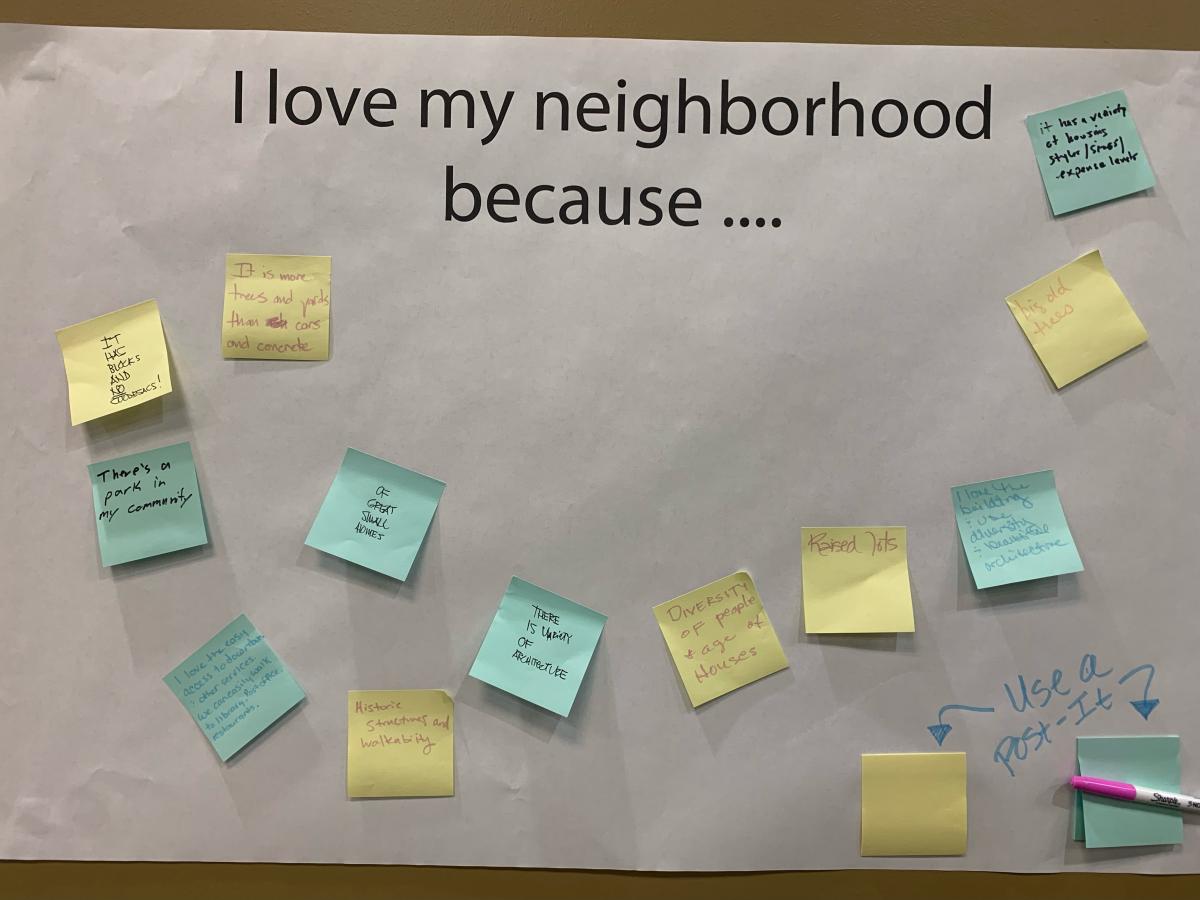 I love my neighborhood
because ....
it has a variety
of housing
styles/sizes/
expense levels
It is more
trees and yards
than cars
and concrete
big old
trees
IT
HAS
BLOCKS
AND
NO
CULDESACS!
There's a
park in
my community
OF
GREAT
SMALL
HOMES
I love the
building
: use
diversity
:
architecture
Raised lots
DIVERSITY
of people
+ age of
Houses
THERE
IS VARIETY
OF
ARCHITECTURE
I love the easy
access to downtown
: other services
we can easily walk
to library, Post office,
restaurants.
Historic
structures and
walkability
Use a
Post-It
Sharpie